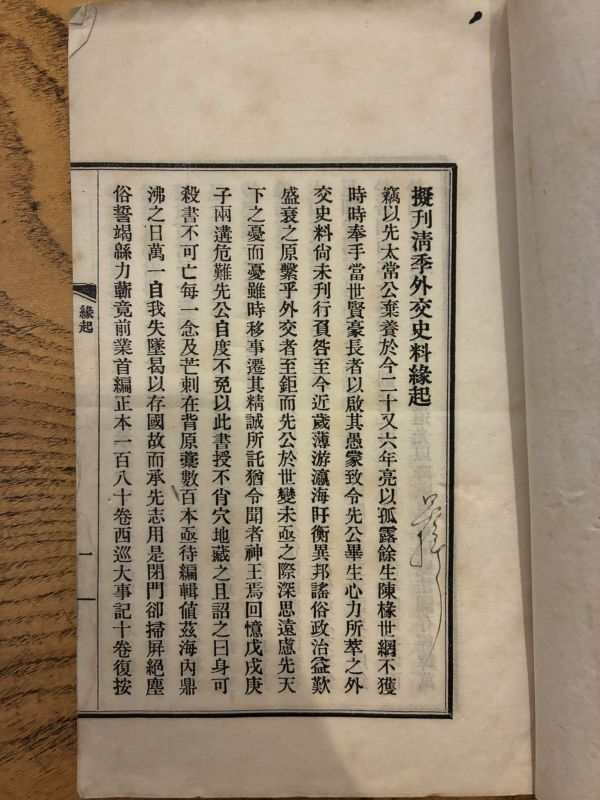 擬刊清季外交史料緣起
竊以先太常公棄養於今二十又六年亮以孤露餘生陳椽世網不獲
時時奉手當世賢豪長者以啟其愚蒙致令先公畢生心力所萃之外
交史料尙未刊行負咎至今近歲薄游瀛海盱衡異邦謠俗政治益歎
盛衰之原繫乎外交者至鉅而先公於世變未亟之際深思遠慮先天
下之憂而憂雖時移事遷其精誠所託猶令聞者神王焉回憶戊戌庚
子兩遘危難先公自度不免以此書授不肖穴地藏之且詔之曰身可
殺書不可亡每一念及芒刺在背原藁數百本亟待編輯値茲海內鼎
沸之日萬一自我失墜曷以存國故而承先志用是閉門卻掃屏絕塵
俗誓竭緜力蘄竟前業首編正本一百八十卷西巡大事記十卷復按
緣起
一